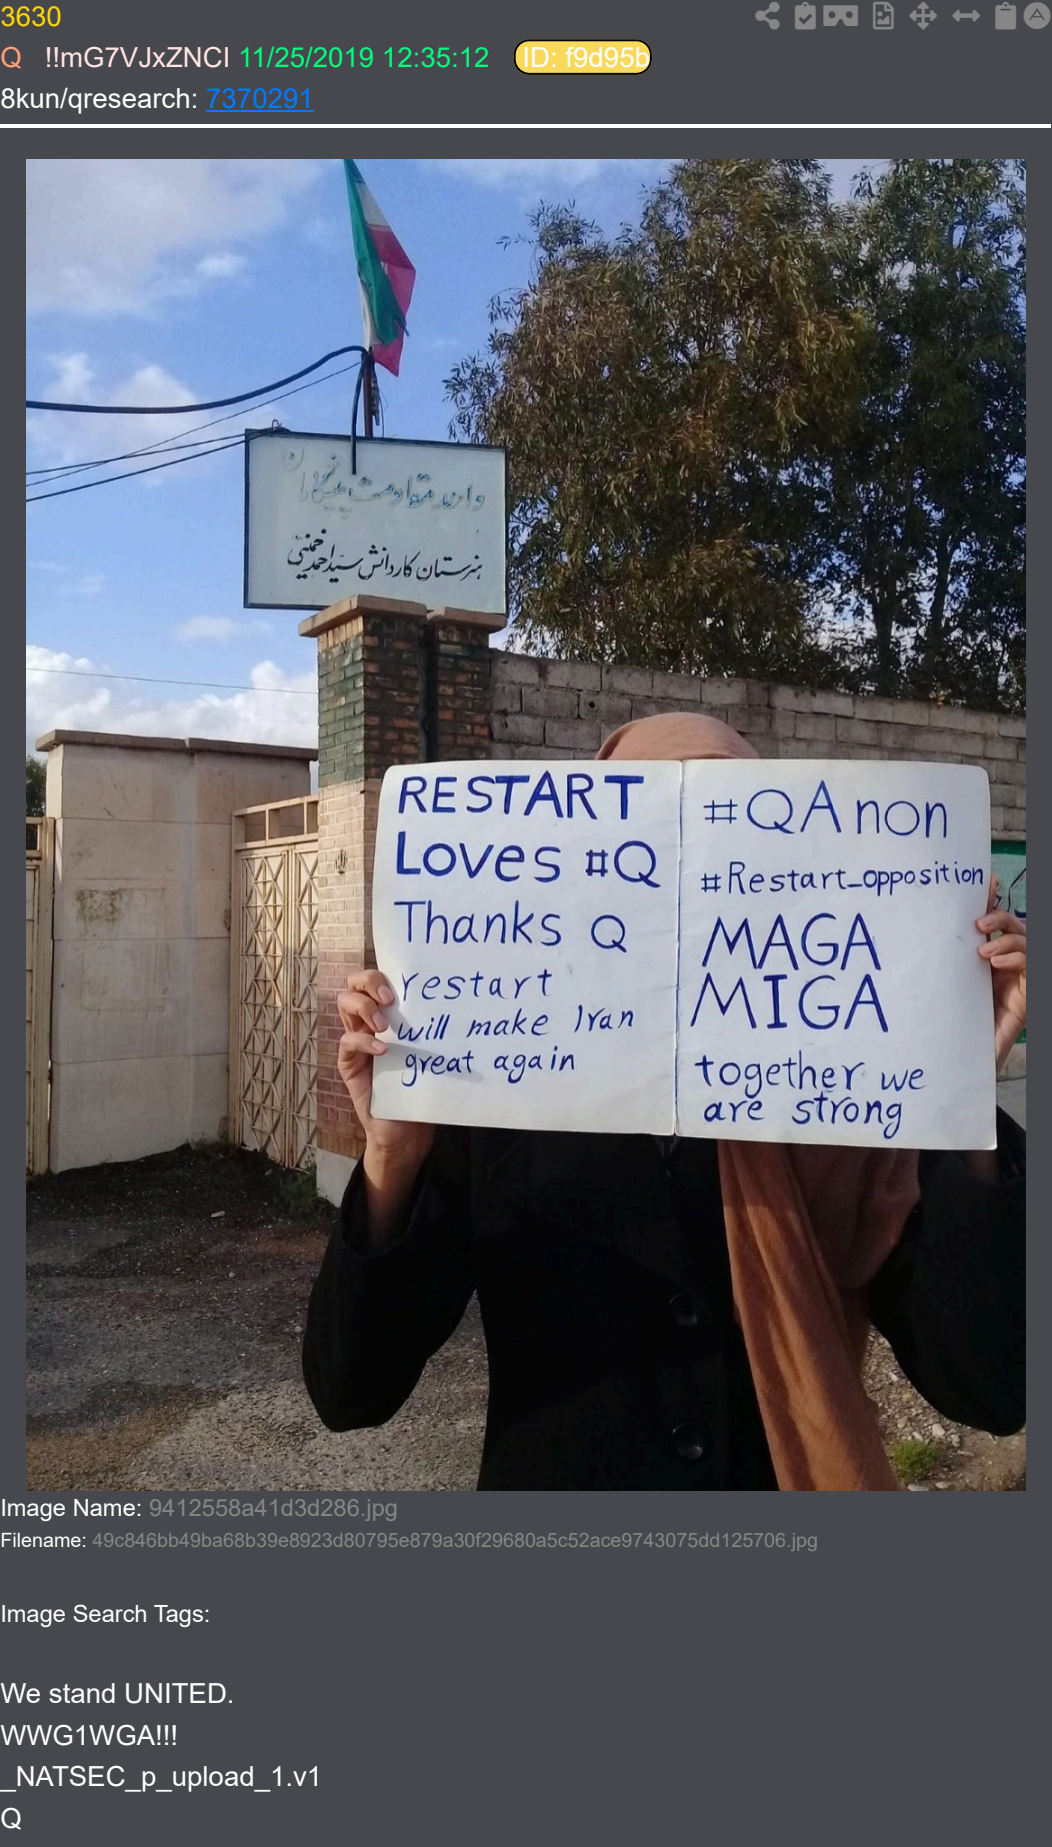 3630
Q !!mG7VJxZNCI 11/25/2019 12:35:12 ID: f9d95b
8kun/qresearch: 7370291
واحد مقاومت
هنرستان کاردانش سید احمد خمینی
RESTART
Loves #Q
Thanks Q
restart
will make Iran
great again
#QAnon
#Restart_opposition
MAGA
MIGA
together we
are strong
Image Name: 9412558a41d3d286.jpg
Filename: 49c846bb49ba68b39e8923d80795e879a30f29680a5c52ace9743075dd125706.jpg
Image Search Tags:
We stand UNITED.
WWG1WGA!!!
_NATSEC_p_upload_1.v1
Q